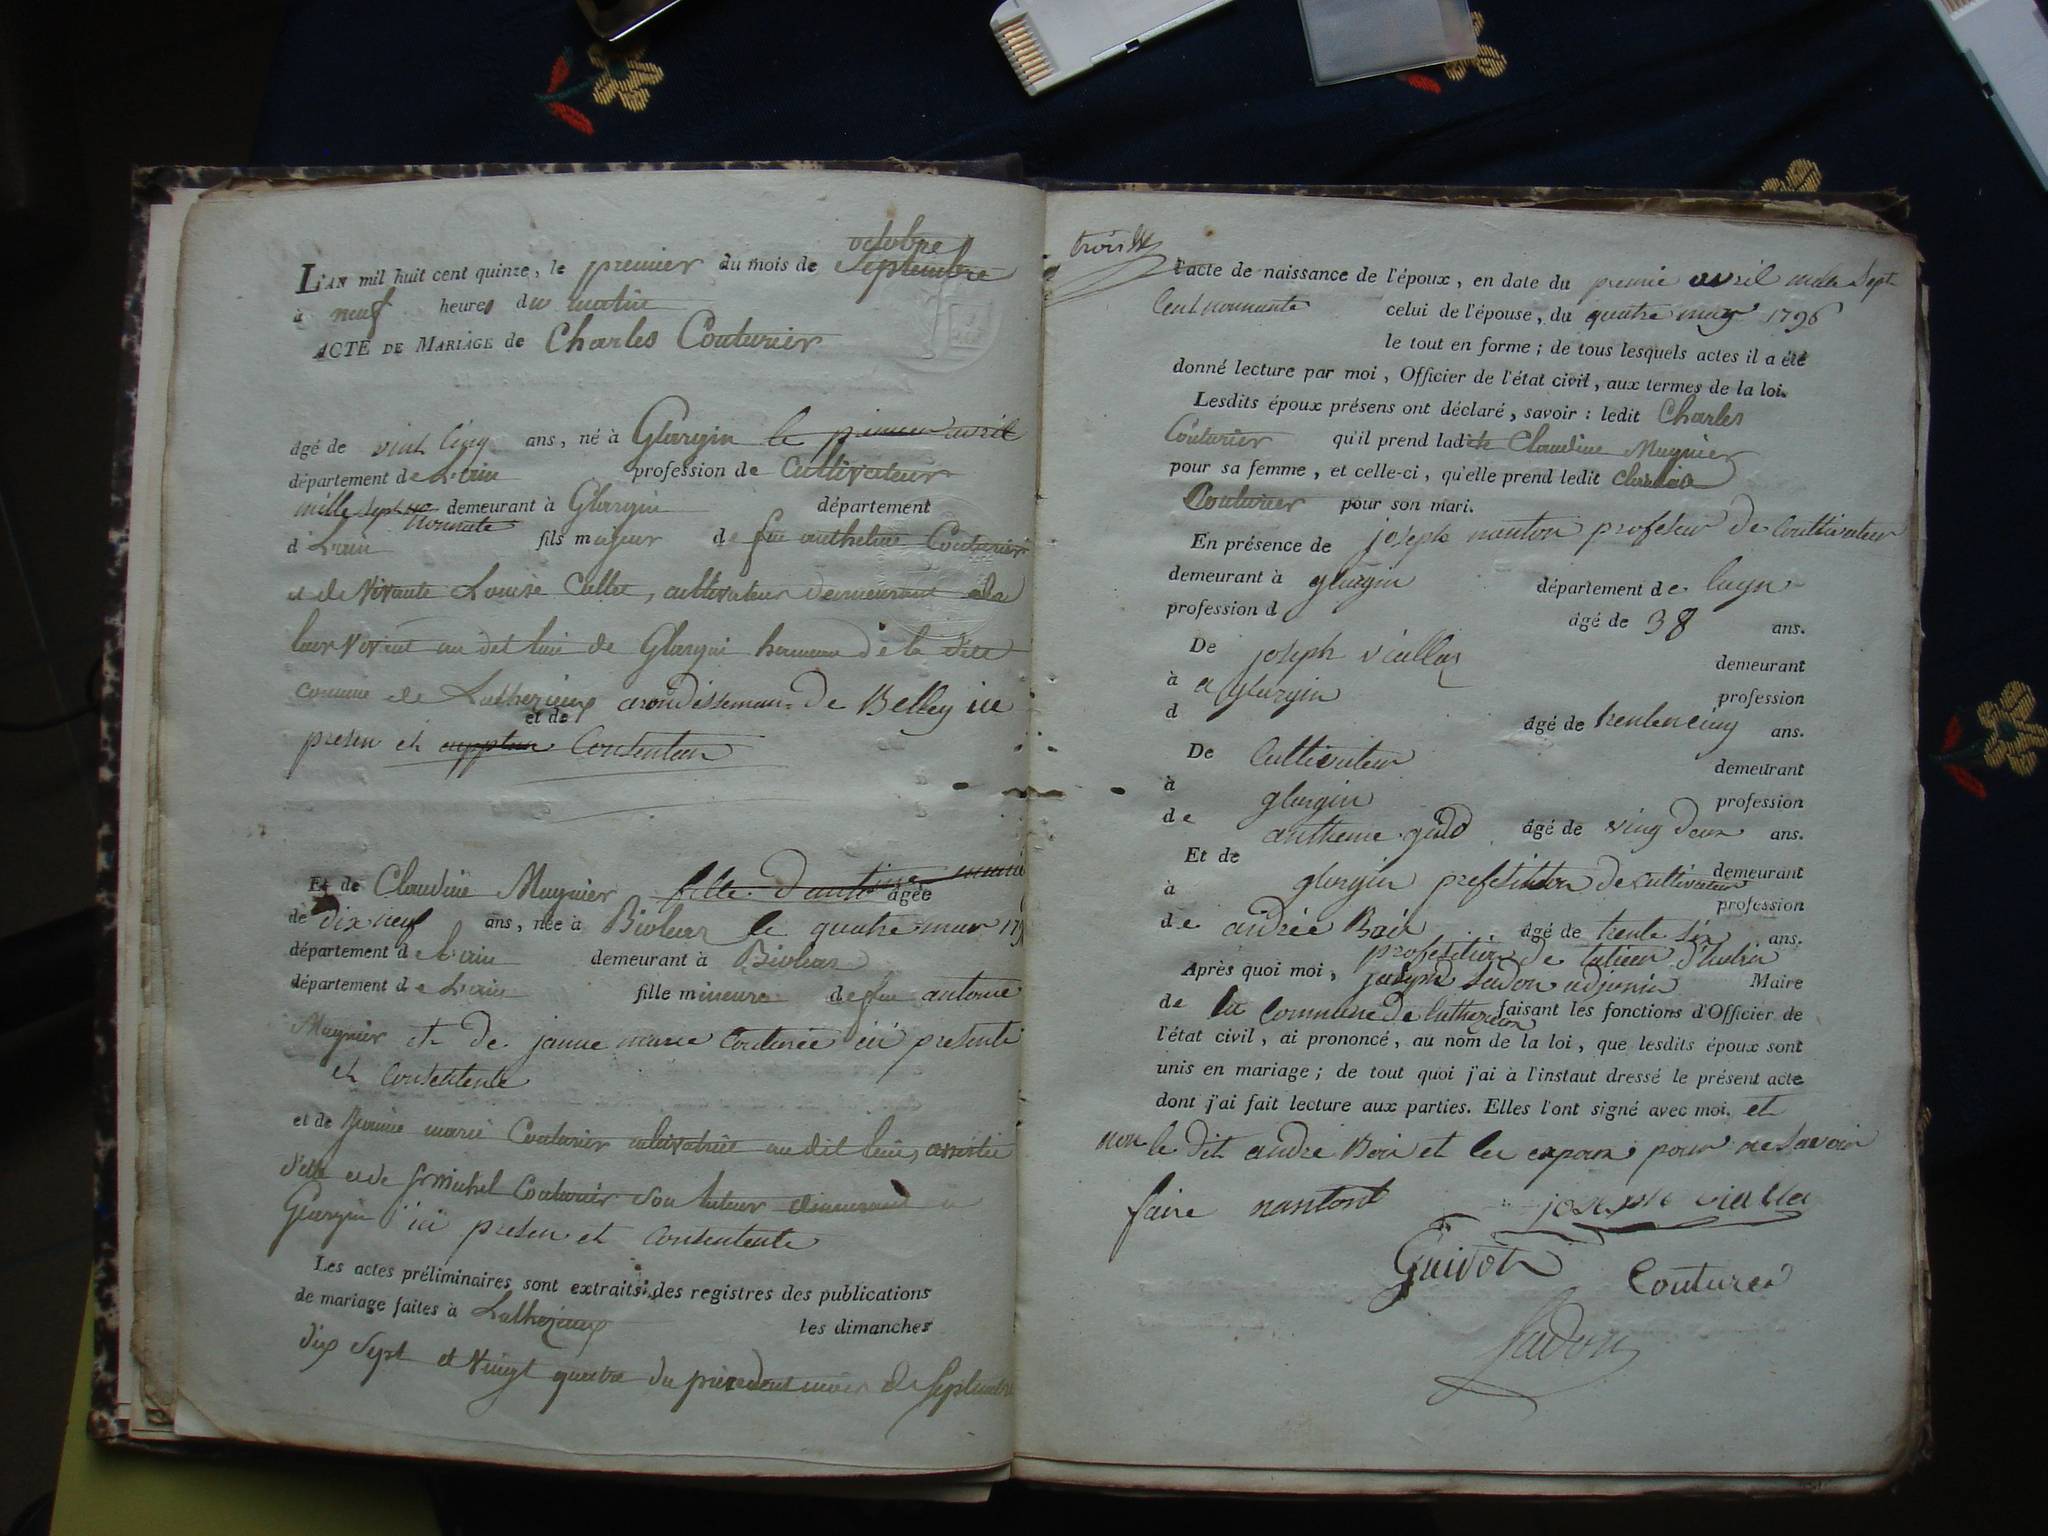 octobre
L'AN mil huit cent quinze, le premier du mois de Septembre
à neuf heures du matin
ACTE DE MARIAGE de Charles Couturier
âgé de vint cinq ans, né à Glargin le premier avril
département de L'ain profession de Cultivateur
mille sept nonnante demeurant à Glargin département
d L'ain fils majeur de feu anthelme Couturier
et de vivante Louise Collet, cultivateur demeurant
leur vivent au dit lieu de Glargin hameau de la dite
comune de Luthezieux arondissement de Belley ice
et de
presen et Consentan
Et de Claudine Mugnier fille d'antoine âgée
de dix neuf ans, née à Bioleaz le quatre mars
département de L'ain demeurant à Bioleaz
département de L'ain fille mineure de feu antoine
Mugnier et de janne marie Couturier ici presente
et Consentente
et de Janne marie Couturier cultivatrice au dit lieu, assistée
d'elle et de sr michel Couturier son tuteur demeurant à
Glargin ici presen et Consentente
Les actes préliminaires sont extraits des registres des publications
de mariage faites à Luthezieux les dimanches
dix sept et vingt quatre du précédent mois de Septembre
trois
l'acte de naissance de l'époux, en date du premié avril mile Sept
Cent nonnante celui de l'épouse, du quatre mars 1796
le tout en forme ; de tous lesquels actes il a été
donné lecture par moi, Officier de l'état civil, aux termes de la loi.
Lesdits époux présens ont déclaré, savoir : ledit Charles
Couturier qu'il prend ladite Claudine Mugnier
pour sa femme, et celle-ci, qu'elle prend ledit Charles
Couturier pour son mari.
En présence de joseph nanton profesion de Coultivateur
demeurant à glargin département de
profession d âgé de 38 ans.
De joseph viallaz demeurant
à a glargin profession
d âgé de trentencinq ans.
De Cultivateur demeurant
à glargin profession
de antheme âgé de ving deux ans.
Et de demeurant
à glargin de Cultivateur profession
de andrée Boir âgé de trente six ans.
profesition de
Après quoi moi, joseph Sudon adjoins Maire
de la Commune de Luthezieux faisant les fonctions d'Officier de
l'état civil, ai prononcé, au nom de la loi, que lesdits époux sont
unis en mariage ; de tout quoi j'ai à l'instaut dressé le présent acte
dont j'ai fait lecture aux parties. Elles l'ont signé avec moi, et
non le dit andre Boir et les epoux pour ne savoir
faire nantont joseph viallaz
Guivot Couturier
Sudon